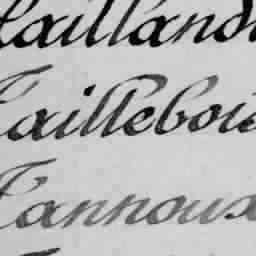 Tailland
Tailleboi
Tannoux